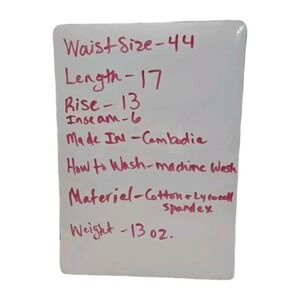 Waist Size - 44
Length - 17
Rise - 13
Inseam - 6
Made In - Cambodia
How to Wash - machine Wash
Material - Cotton + Lyocell
Spandex
Weight - 13 oz.